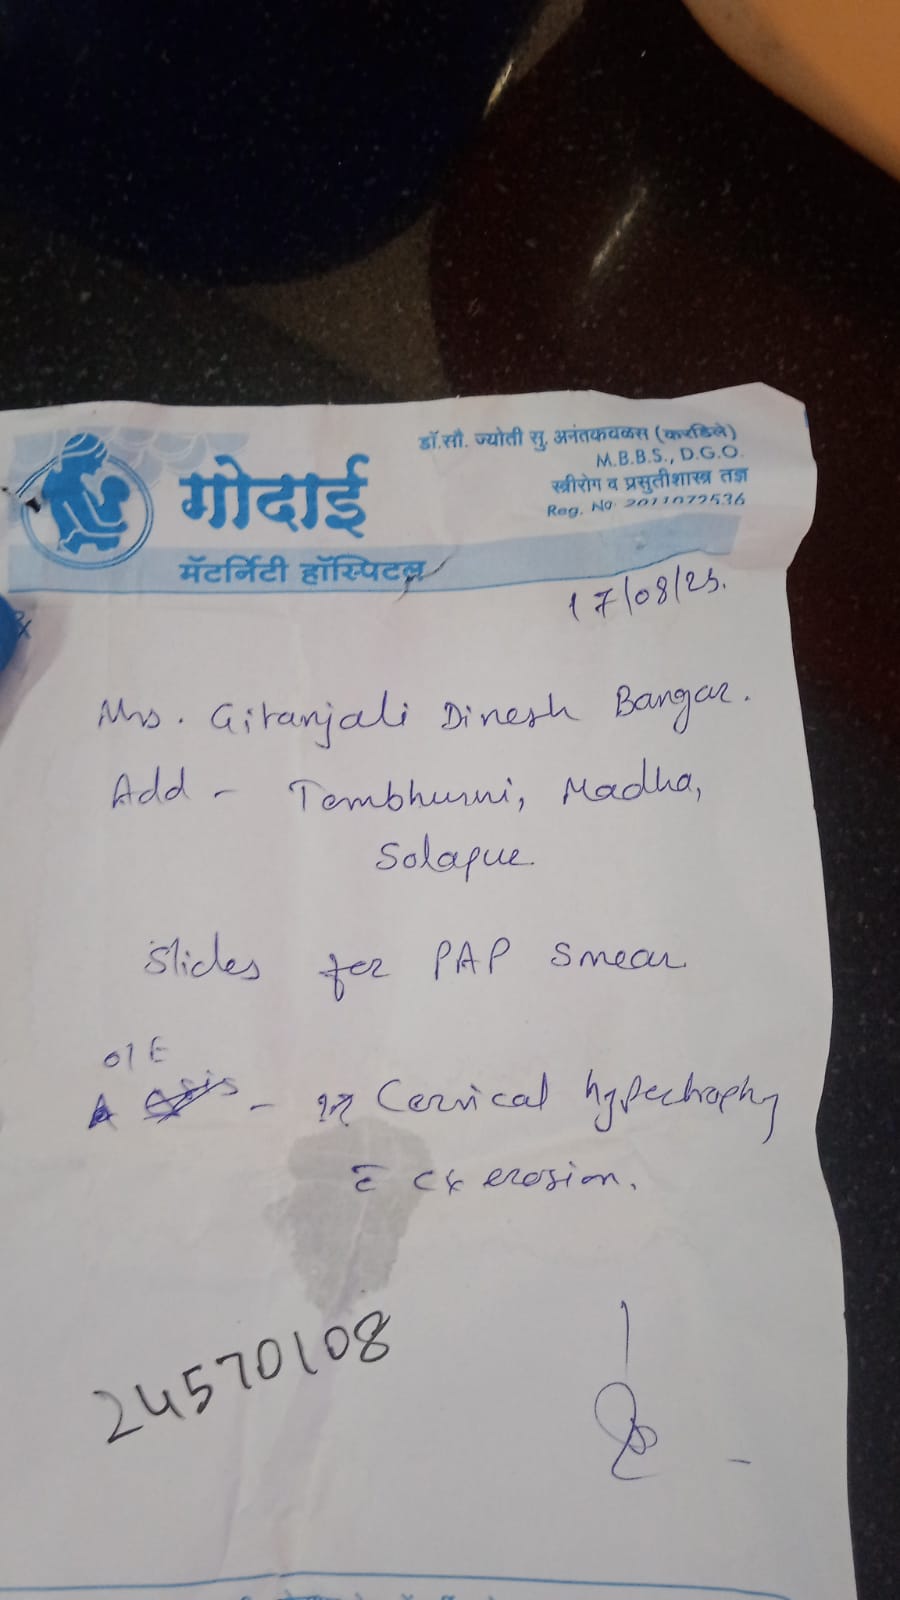 डॉ.सौ. ज्योती सु. अनंतकवळस (करडिले)
M.B.B.S., D.G.O.
स्त्रीरोग व प्रसुतीशास्त्र तज्ञ
Reg. No. 2011072536
गोदाई
मॅटर्निटी हॉस्पिटल
17/08/25.
Mrs. Gitanjali Dinesh Bangar.
Add - Tembhurni, Madha,
Solapur.
Slides for PAP smear
O/E
- Cervical hypertrophy
c̄ cx erosion.
24570108